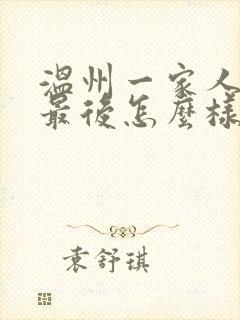 温州一家人
最後怎麼樣
袁舒琪